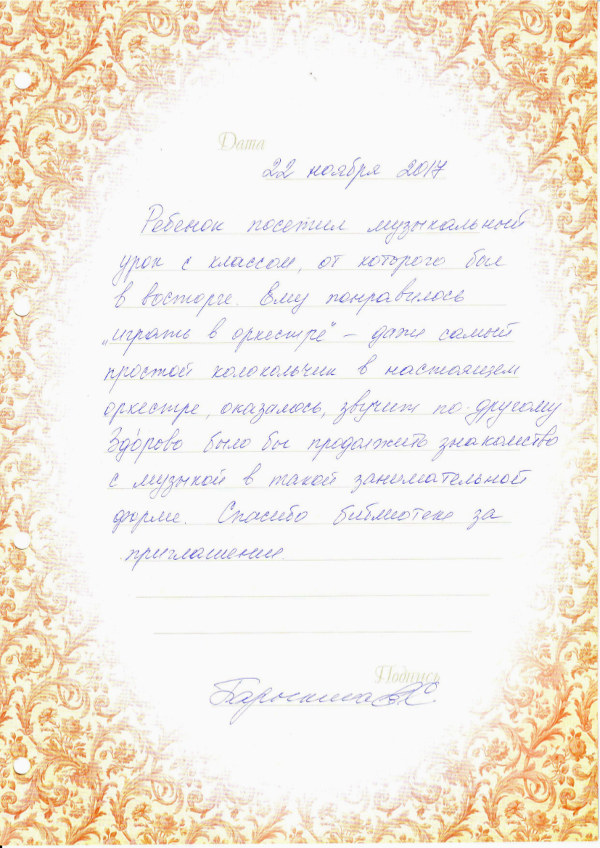 Дата
22 ноября 2017
Ребенок посетил музыкальный
урок с классом, от которого был
в восторге. Ему понравилось
„играть в оркестре" – даже самый
простой колокольчик в настоящем
оркестре, оказалось, звучит по-другому
Здорово было бы продолжить знакомство
с музыкой в такой занимательной
форме. Спасибо библиотеке за
приглашение.
Подпись